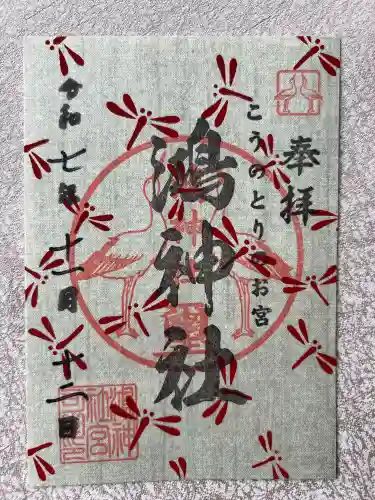 奉拝
こうのとりのお宮
鴻神社
令和七年十一月十二日